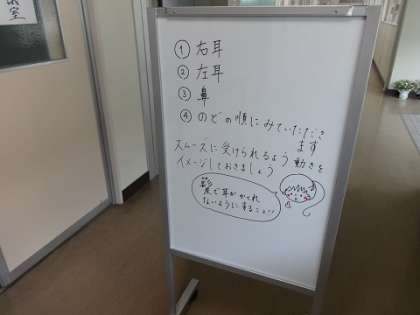 室
① 右耳
② 左耳
③ 鼻
④ のどの順にみていただき
ます
スムーズに受けられるよう 動きを
イメージしておきましょう
髪で耳がかくれ
ないようにすること!!